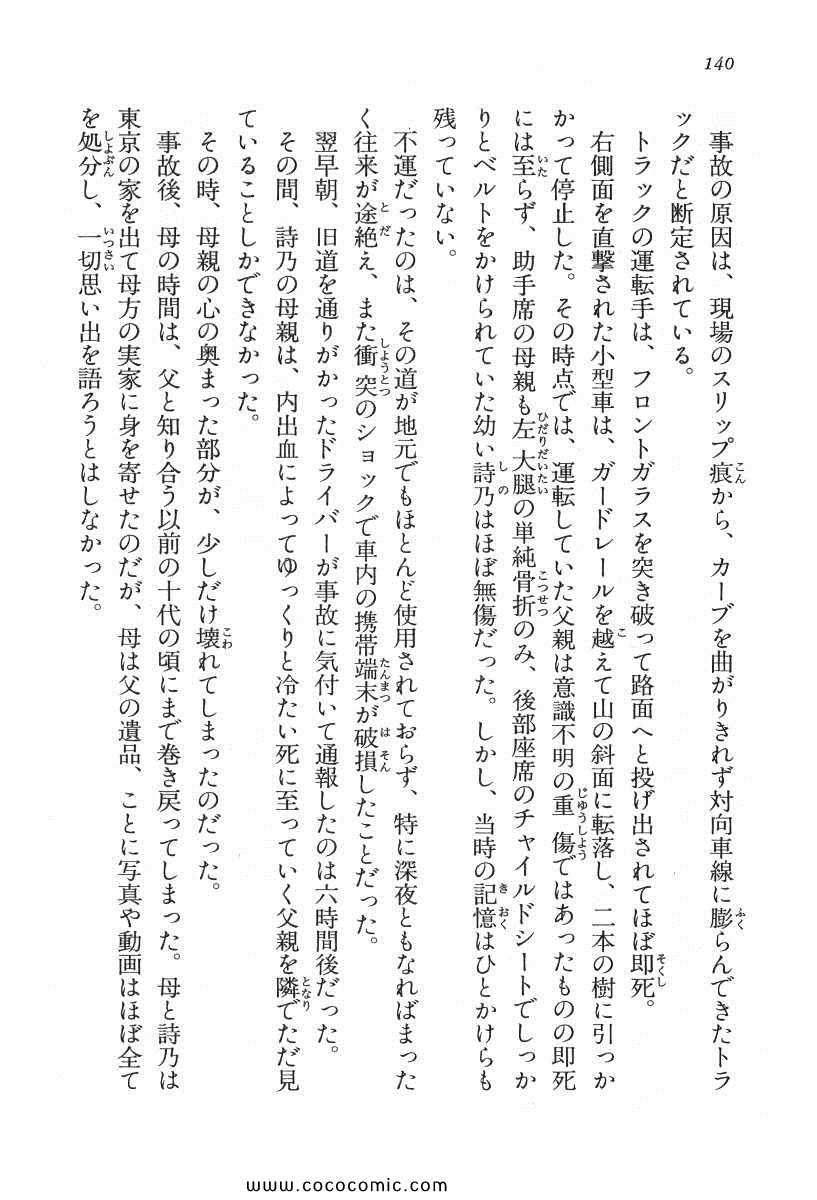 140
事故の原因は、現場のスリップ痕から、カーブを曲がりきれず対向車線に膨らんできたトラ
ックだと断定されている。
トラックの運転手は、フロントガラスを突き破って路面へと投げ出されてほぼ即死。
右側面を直撃された小型車は、ガードレールを越えて山の斜面に転落し、二本の樹に引っか
かって停止した。その時点では、運転していた父親は意識不明の重傷ではあったものの即死
には至らず、助手席の母親も左大腿の単純骨折のみ、後部座席のチャイルドシートでしっか
りとベルトをかけられていた幼い詩乃はほぼ無傷だった。しかし、当時の記憶はひとかけらも
残っていない。
不運だったのは、その道が地元でもほとんど使用されておらず、特に深夜ともなればまった
く往来が途絶え、また衝突のショックで車内の携帯端末が破損したことだった。
翌早朝、旧道を通りがかったドライバーが事故に気付いて通報したのは六時間後だった。
その間、詩乃の母親は、内出血によってゆっくりと冷たい死に至っていく父親を隣でただ見
ていることしかできなかった。
その時、母親の心の奥まった部分が、少しだけ壊れてしまったのだった。
事故後、母の時間は、父と知り合う以前の十代の頃にまで巻き戻ってしまった。母と詩乃は
東京の家を出て母方の実家に身を寄せたのだが、母は父の遺品、ことに写真や動画はほぼ全て
を処分し、一切思い出を語ろうとはしなかった。
www.cococomic.com